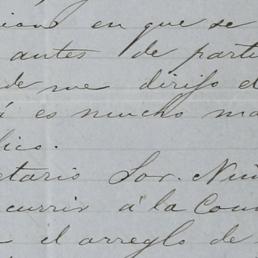 en que se
antes de parti
de me dirijo el
á es mucho ma
lico.
etario Sor. Nuñ
currir á la Com
el arreglo de